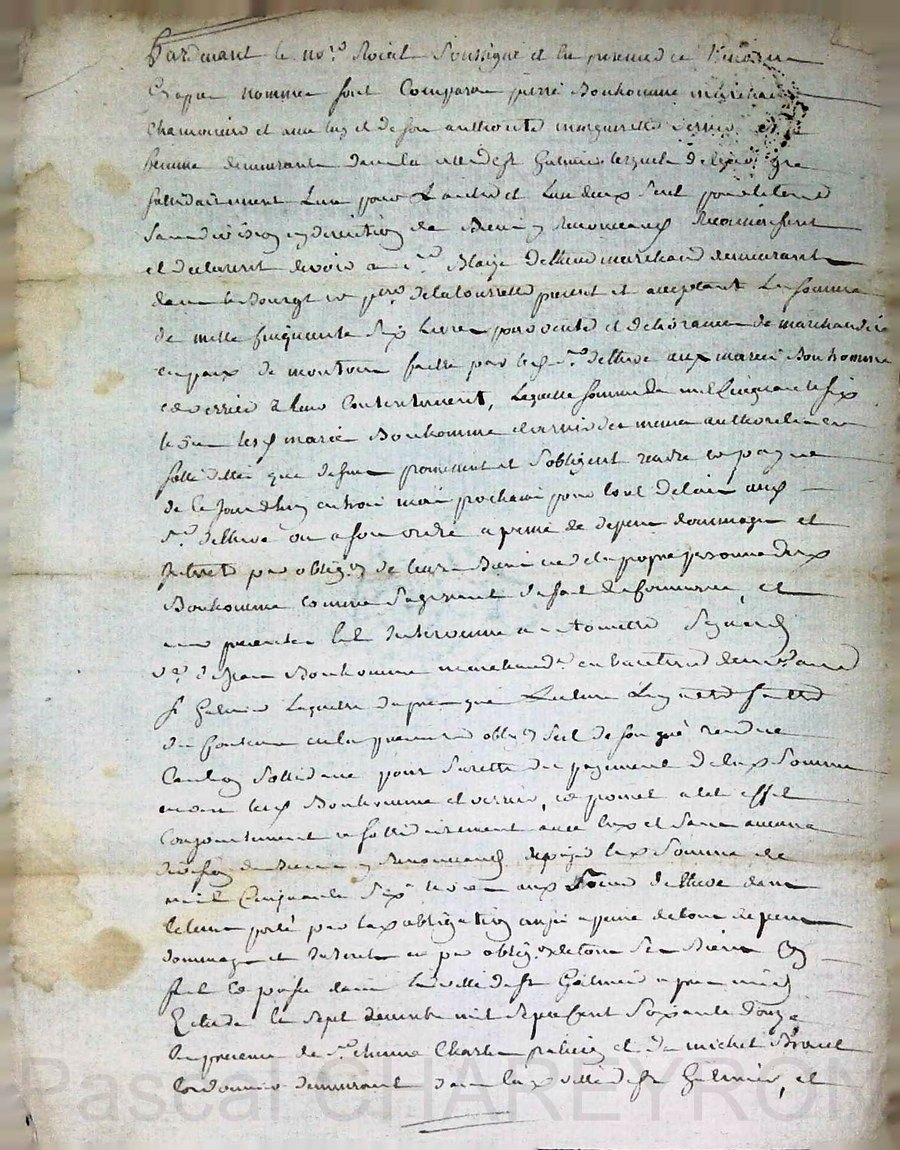 Pardevant le no.re Roial Soussigné et en presence de Temoins
Cy apres nommes sont Comparu pierre Bonhomme marchand
Chamoiseur et avec luy et de son authorité margueritte verrier sa
femme demeurants dans la ville de st Galmier lesquels de leur gré
sollidairement L'un pour L'autre et L'un deux seul pour le tout
sans division ny direction de Biens y Renonceants Reconnoissent
et declarent devoir a s.r Blaize dellieve marchand demeurant
dans le Bourg et p.sse de la tourrette present et acceptant La somme
de mille cinquante six Livres pour vente et delivrance de marchandise
en peaux de moutons faitte par led s.r dellieve aux mariés Bonhomme
et verrier a leur Contentement, Laquelle somme de mil Cinquante six
livres lesd mariés Bonhomme et verrier de meme authorité et
sollidité que dessus promettent et s'obligent rendre et payer
de ce Jourdhuy en trois mois prochain pour tout delais aud
s.r dellieve ou a son ordre a peine de depens dommages et
Interets par oblig.on de leurs Biens et de la propre personne dud
Bonhomme Comme s'agissant de fait de Commerce, et
aux presentes Est Intervenue antoinette
v.e de Jean Bonhomme marchand en demeurant
st Galmier Laquelle apres que Lecture Luy a eté faitte
du Contenu en la presente oblig.on s'est de son gré rendue
Caution sollidaire pour suretté du payement de lad Somme
envers lesd Bonhomme et verrier, et promet a cet effet
Conjointement et sollidairement avec Eux et sans aucune
division de Biens y Renonceant de payer lad Somme de
mil Cinquante Six livres aud Sieur dellieve dans
le terme porté par lad obligation aussi a peine de tous depens
dommages et Interets et par oblig.on de tous ses Biens
fait et passé dans la ville de st Galmier apres midy
Le sept decembre mil sept Cent soixante douze
En presence de s.r etienne Charles et de michel
Cordonnier demeurant dans lad ville de st Galmier, et
Pascal CHAREYRON